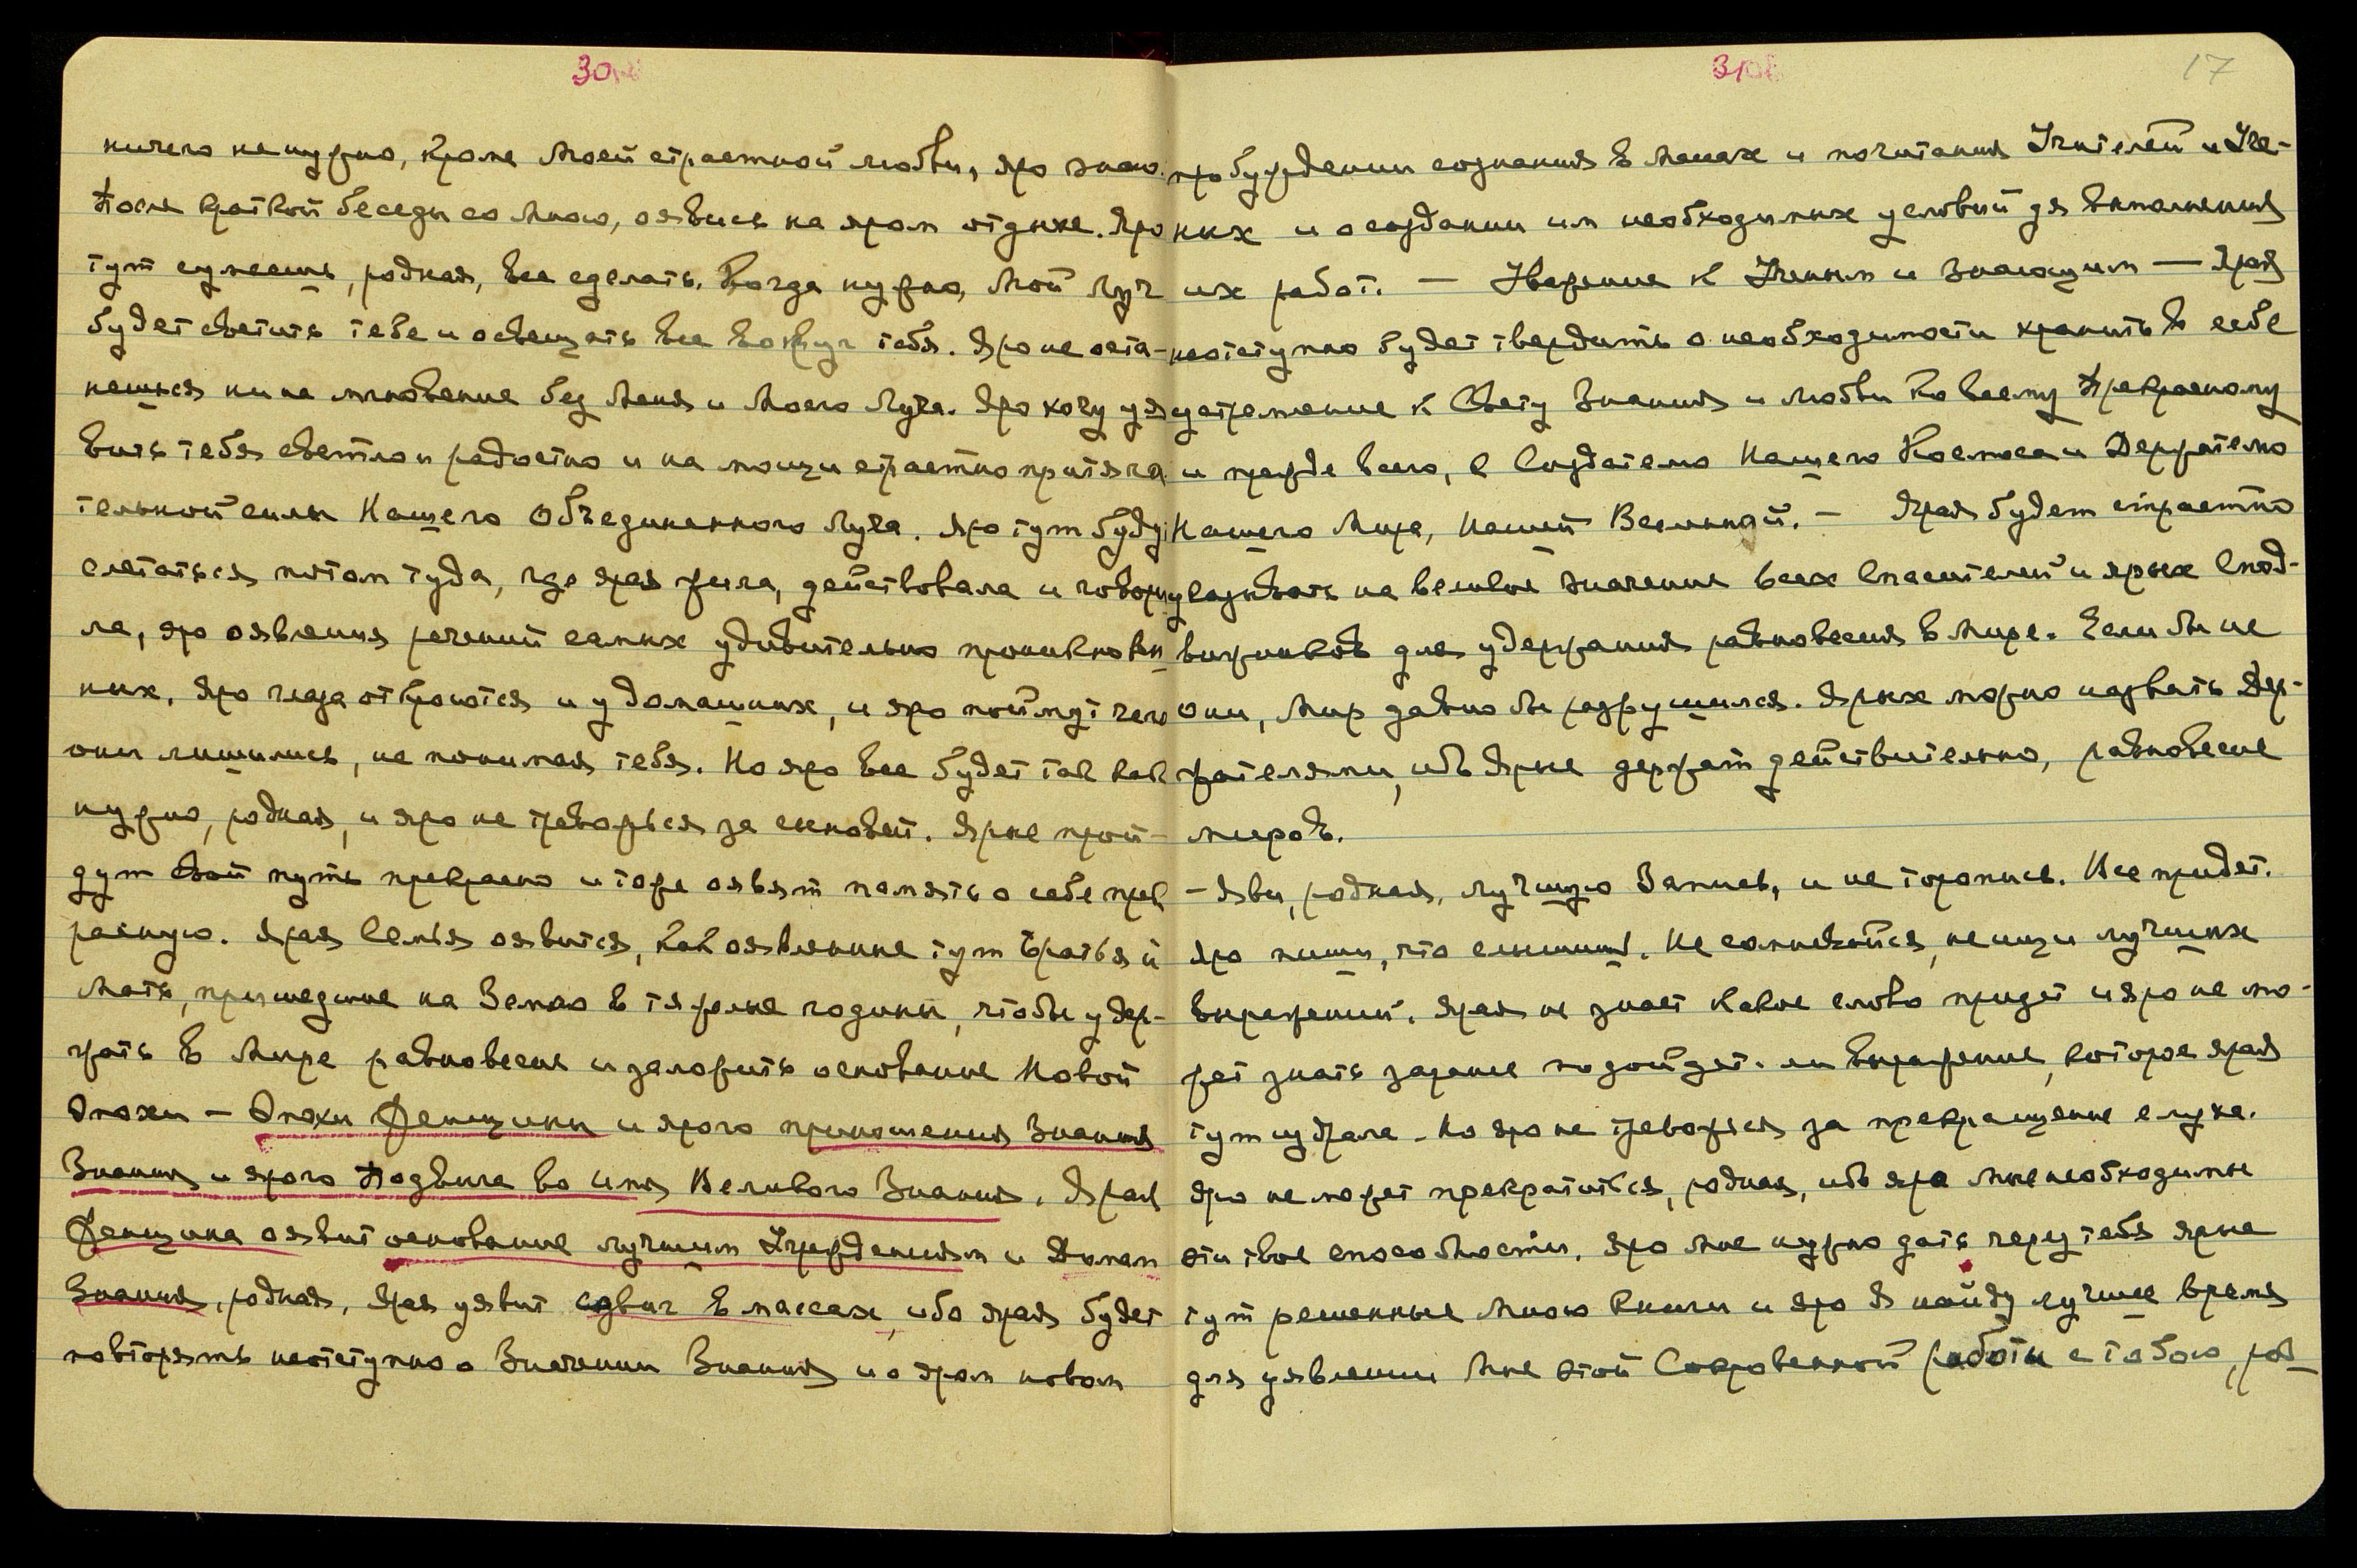 30
ничего не нужно, кроме Моей страстной любви, яро знаю.
После краткой беседы со Мною, оявись на яром отдыхе. Яро
тут сумеешь, родная, все сделать. Когда нужно, Мой Луч
будет светить тебе и освещать все вокруг тебя. Яро не оста-
нешься ни на мгновение без Меня и Моего Луча. Яро хочу уя
вить тебя светло и радостно и на мощи страстно притяга
тельной силы Нашего Объединенного Луча. Яро тут будут
слетаться потом туда, где ярая жила, действовала и говори
ла, яро оявления речений самих удивительно проникновен
ных. Яро глаза откроются и у домашних, и яро поймут чего
они лишились, не понимая тебя. Но яро все будет так как
нужно, родная, и яро не тревожься за сыновей. Ярые прой-
дут свой путь прекрасно и тоже оявят память о себе прек
расную. Ярая Семья оявится, как оявленные тут Братья и
Мать, пришедшие на Землю в тяжелые годины, чтобы удер-
жать в Мире равновесие и заложить основание Новой
Эпохи — Эпохи Женщины и ярого приношения Знания
Знания и ярого Подвига во имя Великого Знания. Ярая
Женщина оявит основание лучшим Учреждениям и Домам
Знания, родная, ярая уявит сдвиг в массах, ибо ярая будет
повторять неотступно о Значении Знания и о яром новом
31
17
пробуждении сознания в массах и почитания Учителей и Уче-
ных и о создании им необходимых условий для выполнения
их работ. — Уважение к Ученым и Знающим — Ярая
неотступно будет твердить о необходимости хранить в себе
устремление к Свету Знания и любви ко всему Прекрасному
и прежде всего, к Создателю Нашего Космоса и Держателю
Нашего Мира, Нашей Вселенной. — Ярая будет страстно
указывать на великое значение всех Спасителей и ярых Спод-
вижников для удержания равновесия в Мире. Если бы не
они, Мир давно бы разрушился. Ярых можно назвать Дер-
жателями, ибо Ярые держат действительно, равновесие
миров.
— Яви, родная, лучшую Запись, и не торопись. Все придет.
Яро пиши, что слышишь. Не сомневайся, не ищи лучших
выражений. Ярая не знает какое слово придет и яро не мо-
жет знать заранее подойдет ли выражение, которое ярая
тут избрала. Но яро не тревожься за прекращение слуха.
Яро не может прекратиться, родная, ибо яро Мне необходимы
эти твои способности. Яро Мне нужно дать через тебя ярые
тут решенные Мною Книги и яро Я найду лучшее время
для уявлении Мне этой Сокровенной работы с тобою, род